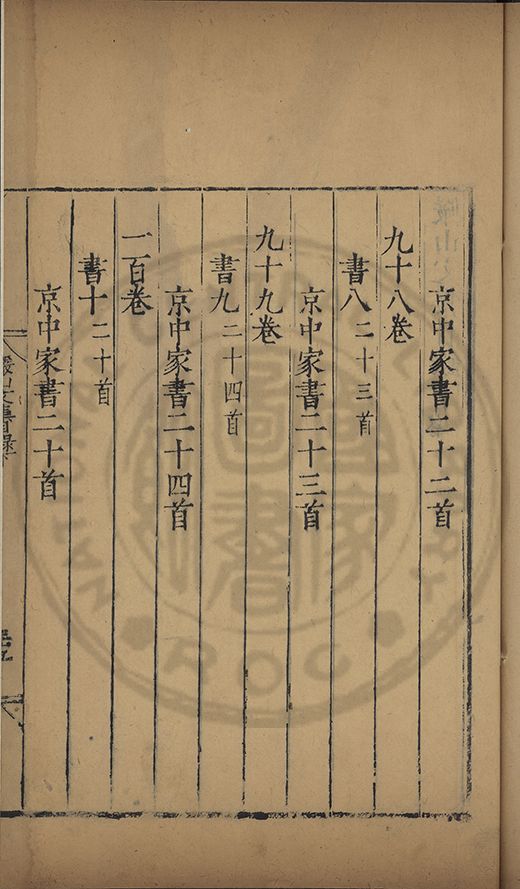 京中家書二十二首
九十八卷
書八二十三首
京中家書二十三首
九十九卷
書九二十四首
京中家書二十四首
一百卷
書十二十首
京中家書二十首